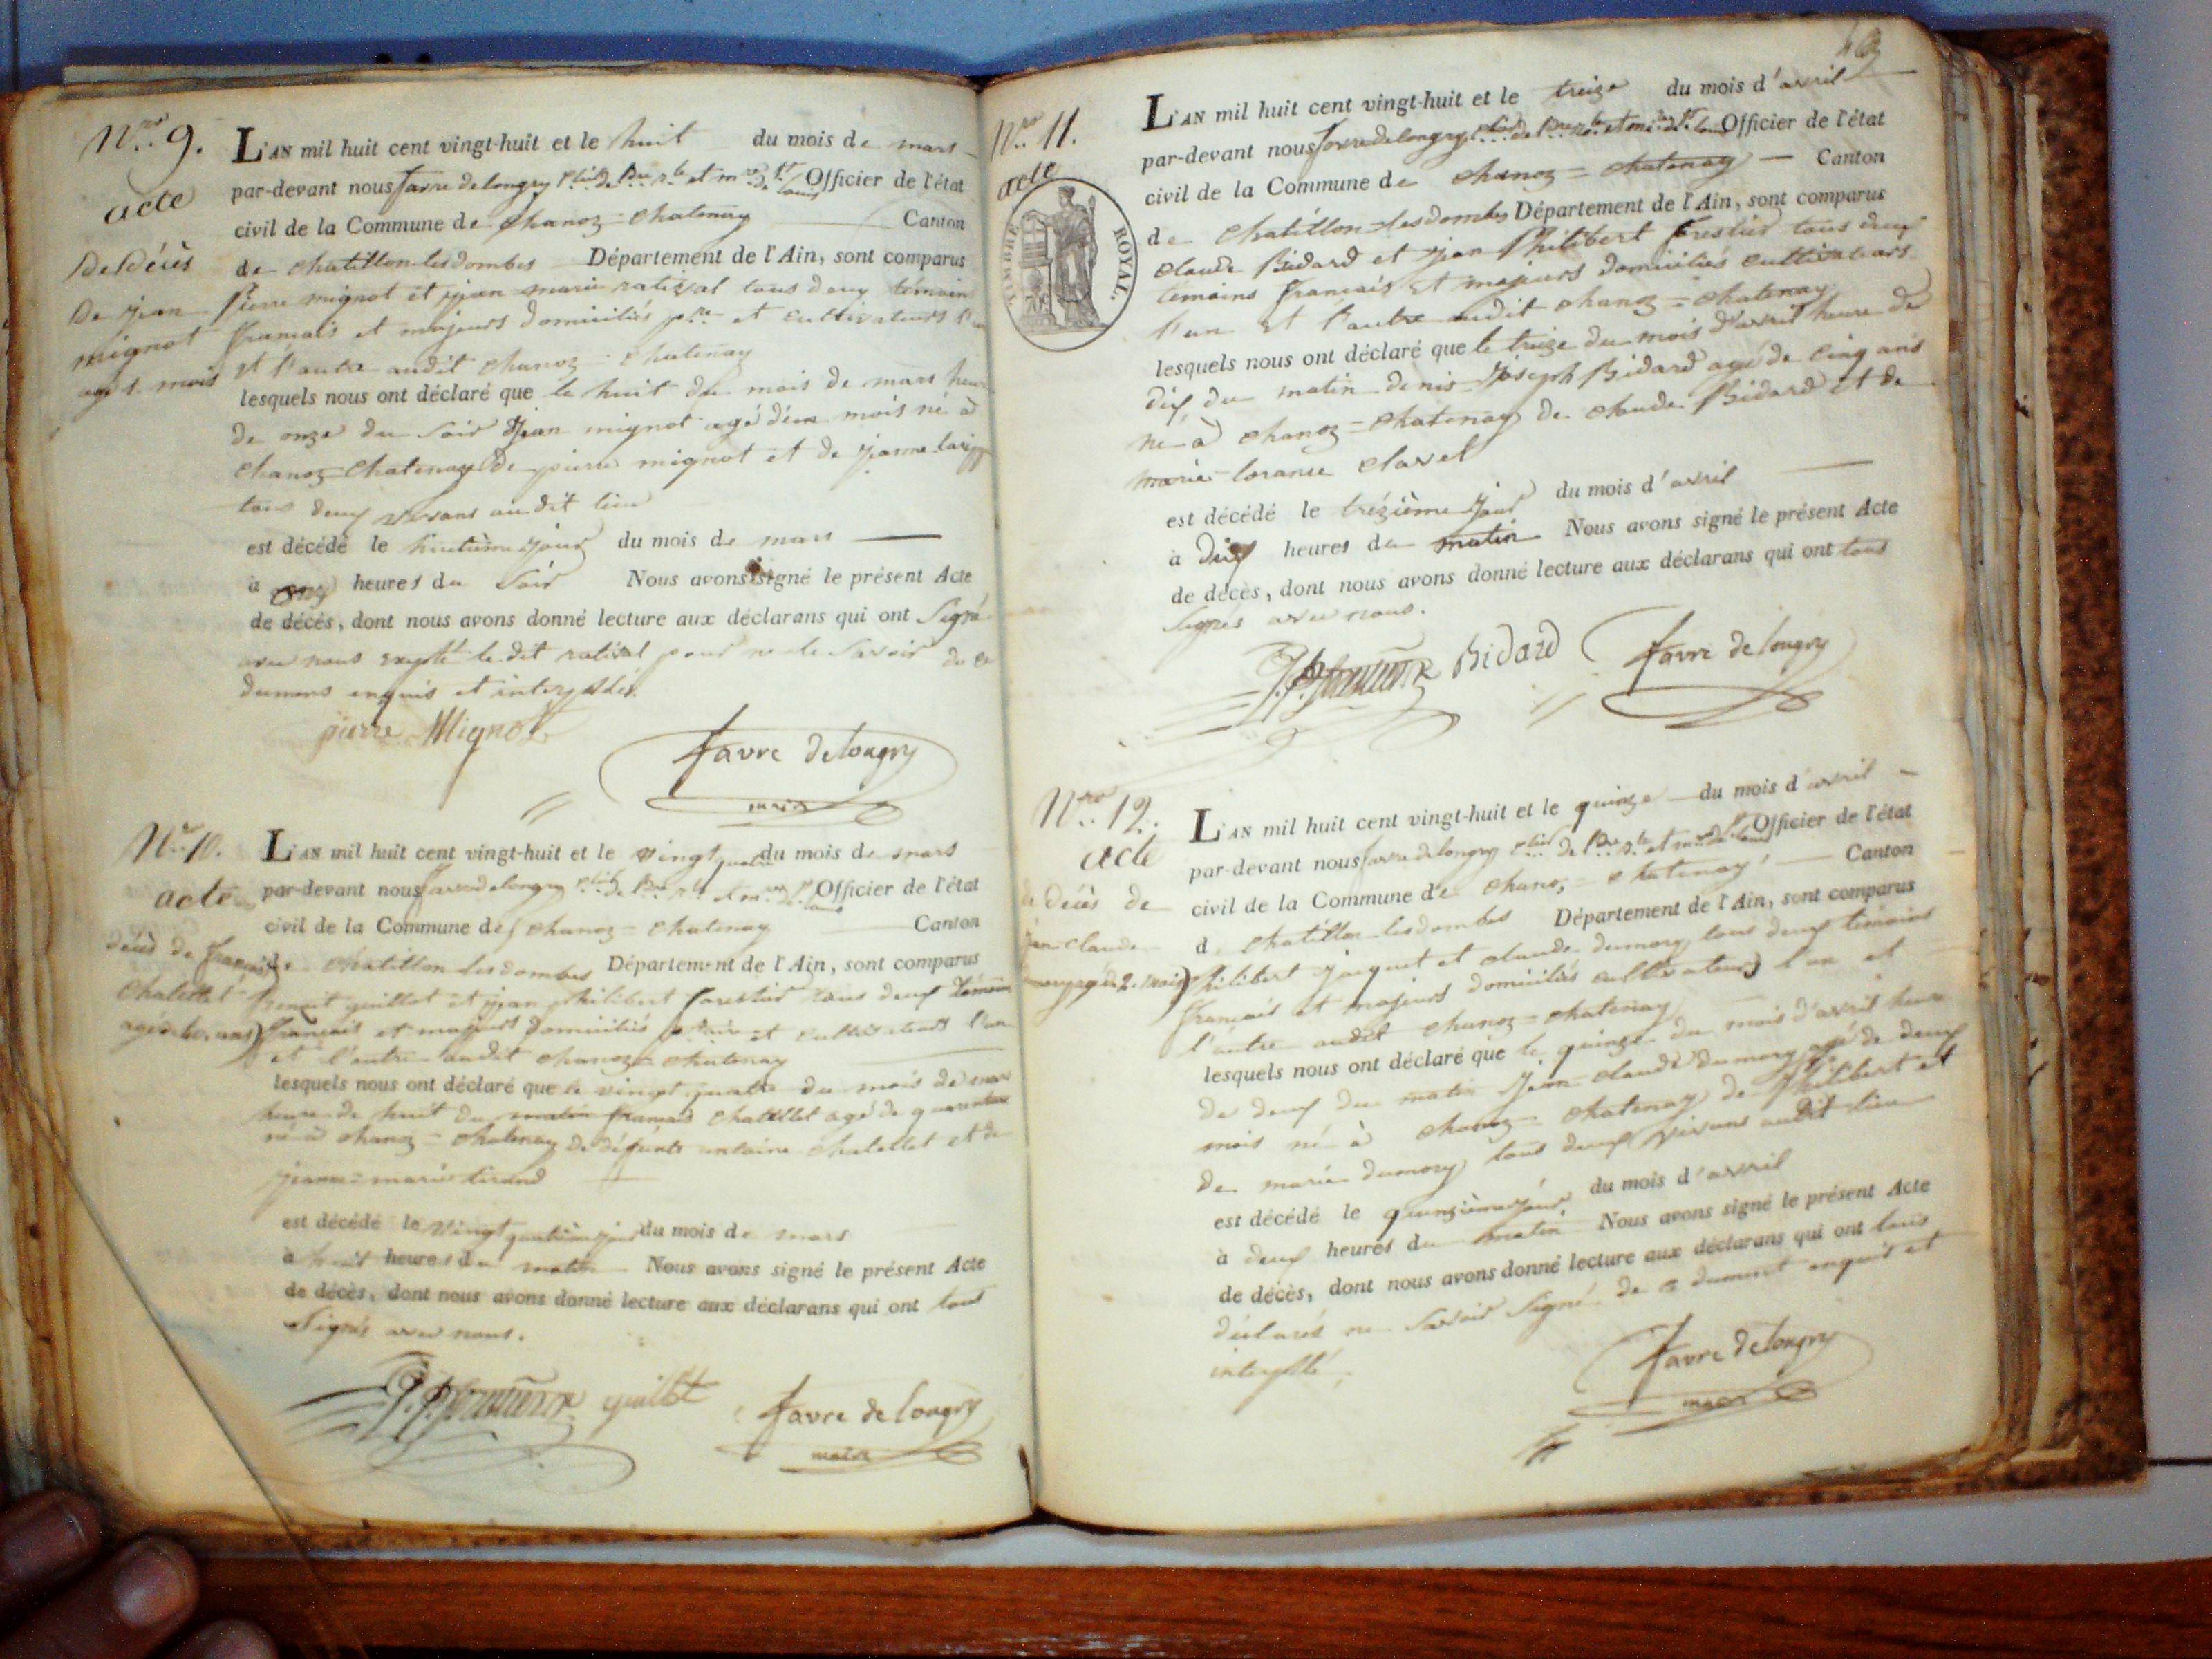 Nro 9.
acte
De Décès
De jean
mignot
agé 1. mois
L'AN mil huit cent vingt-huit et le huit du mois de mars
par-devant nous favre delongry Officier de l'état
civil de la Commune de Chanoz = Chatenay Canton
de Chatillon lesdombes Département de l'Ain, sont comparus
pierre mignot et jean marie ratival tous deux témoins
français et majeurs domiciliés et cultivateurs l'un
et l'autre audit Chanoz = Chatenay
lesquels nous ont déclaré que le huit du mois de mars heure
de onze du soir jean mignot agé d'un mois né à
Chanoz Chatenay de pierre mignot et de jeanne
tous deux vivans au dit lieu
est décédé le huitième jour du mois de mars
à onze heures du soir Nous avons signé le présent Acte
de décès, dont nous avons donné lecture aux déclarans qui ont signé
avec nous excepté le dit ratival pour ne le savoir de ce
dument enquis et interpellés.
pierre Mignot
favre delongry
maire
Nro 10.
acte
décès de françois
Chatellet
agé de 40. ans
L'AN mil huit cent vingt-huit et le vingt quatre du mois de mars
par-devant nous favre delongry Officier de l'état
civil de la Commune de Chanoz = Chatenay Canton
de Chatillon lesdombes Département de l'Ain, sont comparus
Benoit guillot et jean philibert forestier tous deux témoins
français et majeurs domiciliés et cultivateurs l'un
et l'autre audit Chanoz = Chatenay
lesquels nous ont déclaré que le vingt quatre du mois de mars
heure de huit du matin français Chatellet agé de quarente
né à Chanoz = Chatenay de défunts antoine Chatellet et de
jeanne = marie tirand
est décédé le vingt quatrième jour du mois de mars
à huit heures du matin Nous avons signé le présent Acte
de décès, dont nous avons donné lecture aux déclarans qui ont tous
signés avec nous.
guillot favre de longry
maire
Nro 11.
acte
TIMBRE ROYAL.
L'AN mil huit cent vingt-huit et le treize du mois d'avril
par-devant nous favre delongry Officier de l'état
civil de la Commune de Chanoz = Chatenay Canton
de Chatillon lesdombes Département de l'Ain, sont comparus
Claude Bidard et jean Philibert forestier tous deux
témoins français et majeurs domiciliés cultivateurs
l'un et l'autre audit Chanoz = Chatenay
lesquels nous ont déclaré que le treize du mois d'avril heure de
dix du matin denis Joseph Bidard agé de cinq ans
né à Chanoz = Chatenay de Claude Bidard et de
marie loranse Clavel
est décédé le trézième jour du mois d'avril
à Dix heures du matin Nous avons signé le présent Acte
de décès, dont nous avons donné lecture aux déclarans qui ont tous
signés avec nous.
Bidard favre de longry
Nro 12.
acte
de décès de
jean Claude
dumory agé de 2. mois
L'AN mil huit cent vingt-huit et le quinze du mois d'avril
par-devant nous favre delongry Officier de l'état
civil de la Commune de Chanoz = Chatenay Canton
de Chatillon lesdombes Département de l'Ain, sont comparus
philibert jacquet et claude dumory tous deux témoins
français et majeurs domiciliés cultivateurs l'un et
l'autre audit Chanoz = Chatenay
lesquels nous ont déclaré que le quinze du mois d'avril heure
de deux du matin jean claude dumory agé de deux
mois né à Chanoz Chatenay de philibert et
de marie dumory tous deux vivans audit lieu
est décédé le quinzième jour du mois d'avril
à deux heures du matin Nous avons signé le présent Acte
de décès, dont nous avons donné lecture aux déclarans qui ont tous
déclarés ne savoir signé de ce dument enquis et
interpellé.
favre de longry
maire